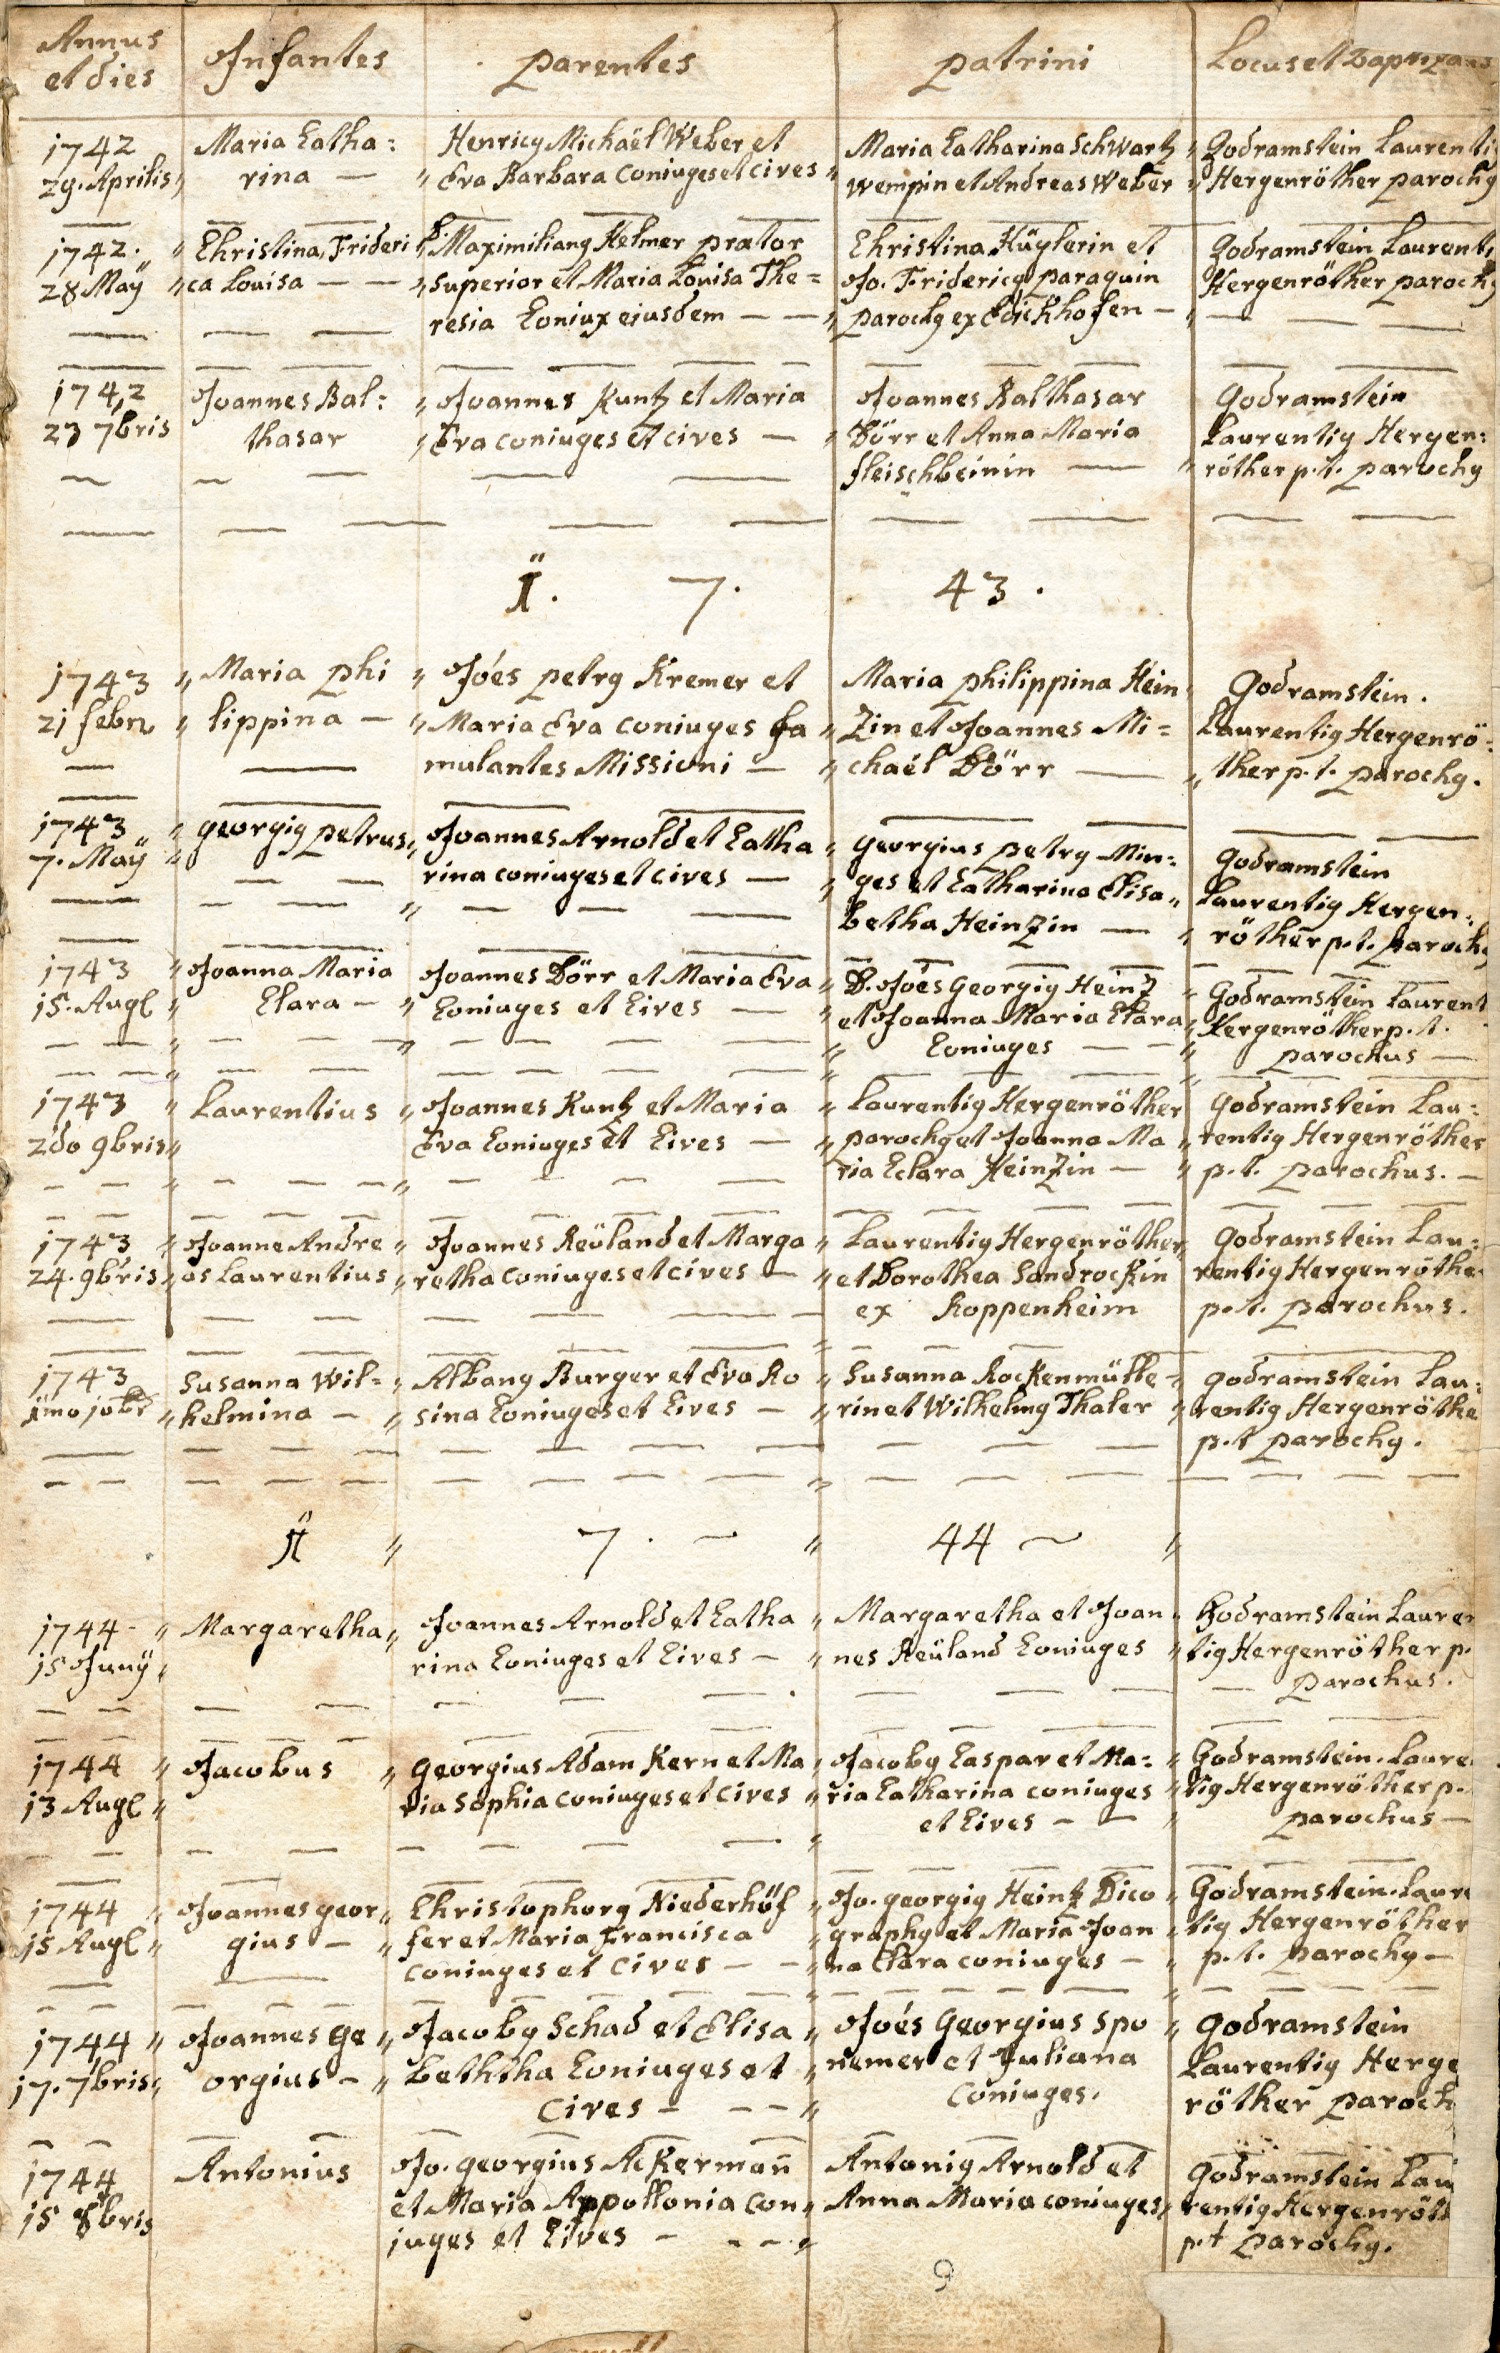 Annus et dies
Infantes
parentes
patrini
Locus et
1742
29. Aprilis
Maria Catha:
rina —
Henricg Michaël Weber et
Eva Barbara Coniuges et cives
Maria Catharina Schwartz
wempin et Andreas Weber
Godramstein Laurentig
Hergenröther parochg
1742.
28 Maÿ
Christina, Frideri
ca Louisa — —
D. Maximiliang Helmer prætor
superior et Maria Louisa The=
resia Coniux eiusdem — —
Christina Küglerin et
Jo. Fridericg paraquin
parochg ex Edickhofen —
Godramstein Laurenti
Hergenröther parochg
1742
23 7bris
Joannes Bal:
thasar
Joannes Kuntz et Maria
Eva coniuges et cives —
Joannes Balthasar
Dörr et Anna Maria
fleischbeinin —
Godramstein
Laurentig Hergen:
röther p.t. parochg
1. 7. 43.
1743
21 febr
Maria phi
lippina —
Jöes petrg Kremer et
Maria Eva coniuges fa
mulantes Missioni —
Maria philippina Hein
Zin et Joannes Mi=
chaël Dörr —
Godramstein.
Laurentig Hergenrö=
ther p.t. parochg.
1743
7. Maÿ
georgig petrus
Joannes Arnold et Catha
rina coniuges et cives —
georgius petrg Min=
ges et Catharina Elisa
betha HeinZin —
godramstein
Laurentig Hergen:
röther p.t. parochg
1743
15. Augl
Joanna Maria
Clara —
Joannes Dörr et Maria Eva
Coniuges et Cives —
D. Joës georgig Heintz
et Joanna Maria Clara
Coniuges — —
Godramstein Laurent
Hergenröther p.t.
parochus —
1743
2do 9bris
Laurentius
Joannes Kuntz et Maria
Eva Coniuges et Cives —
Laurentig Hergenröther
parochg et Joanna Ma
ria Cclara HeinZin —
Godramstein Lau:
rentig Hergenröther
p.t. parochus. —
1743
24. 9bris
Joanne Andre
as Laurentius
Joannes Reüland et Marga
retha coniuges et cives —
Laurentig Hergenröther
et Dorothea Sandrockin
ex Roppenheim
Godramstein Lau:
rentig Hergenröthe
p.t. parochus.
1743
1mo 10br
Susanna Wil=
helmina —
Albang Burger et Eva Ro
sina Coniuges et Cives —
Susanna Rockenmülle=
rin et Wilhelmg Thaler
godramstein Lau:
rentig Hergenröthe
p.t parochg.
1 7. — 44 ~
1744
15 Junÿ
Margaretha
Joannes Arnold et Catha
rina Coniuges et Cives —
Margaretha et Joan
nes Reüland Coniuges
Godramstein Lauren
tig Hergenröther p.
— parochus.
1744
13 Augl
Jacobus
georgius Adam Kern et Ma
ria Sophia coniuges et cives
Jacobg Caspar et Ma=
ria Catharina coniuges
et Cives — —
Godramstein. Laure
tig Hergenröther p.
parochus —
1744
15 Augl
Joannes geor
gius —
Christophorg Niederhöf
fer et Maria Francisca
coniuges et cives — —
Jo. georgig Heintz Dico
graphg et Maria Joan
na Clara coniuges —
Godramstein. Laure
tig Hergenröther
p.t. parochg —
1744
17. 7bris
Joannes ge
orgius —
Jacobg Schad et Elisa
beththa Coniuges et
Cives — — —
Joës georgius Spo
nemer et Juliana
Coniuges.
godramstein
Laurentig Herge
röther paroch
1744
15 8bris
Antonius
Jo. georgius Ackermañ
et Maria Appollonia Con
juges et Cives — — —
Antonig Arnold et
Anna Maria coniuges
godramstein Lau
rentig Hergenröth
p.t parochg.
9